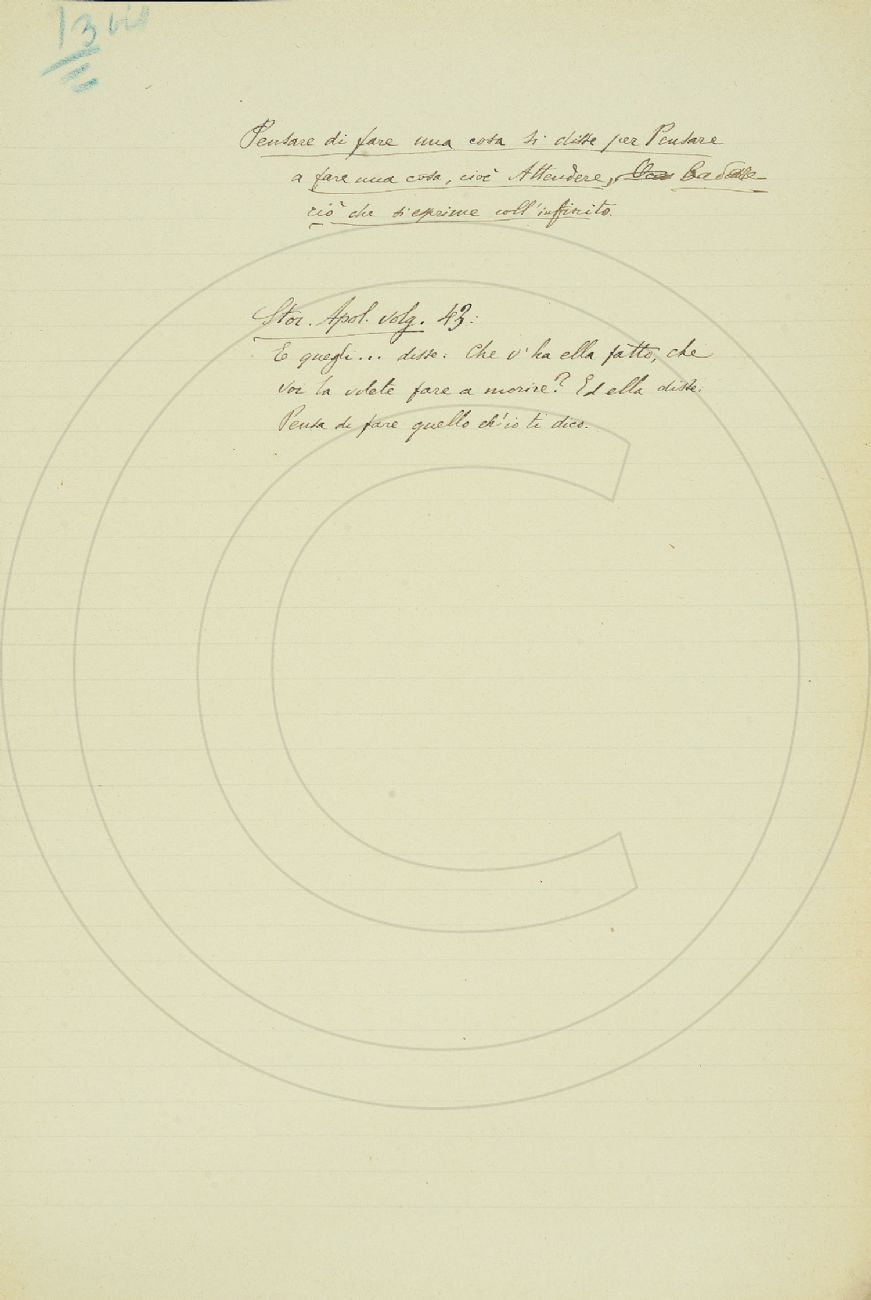 13
Pensare di fare una cosa si disse per Pensare
a fare una cosa, cioè Attendere,
ciò che si esprime coll'infinito.
Stor. Apol. volg. 43:
E quegli... disse: Che v'ha ella fatto, che
voi la volete fare a morire? Ed ella disse:
Pensa di fare quello ch'io ti dico.